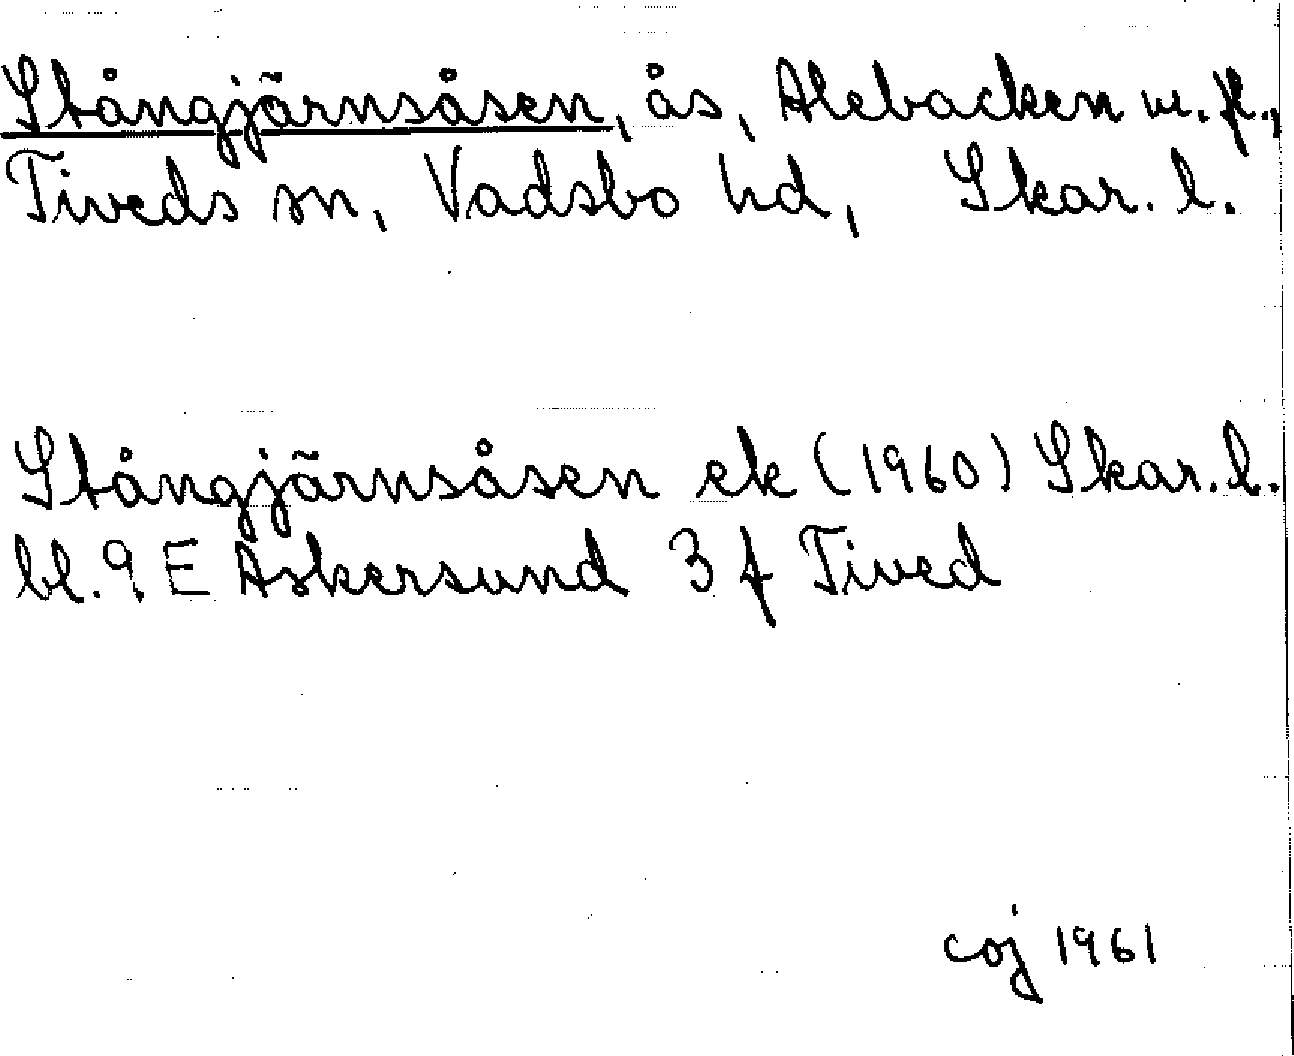 Stångjärnsåsen, ås, Alebacken m. fl.,
Tiveds sn, Vadsbo hd, Skar. l.
Stångjärnsåsen ek (1960) Skar. l.
bl. 9 E Askersund 3 f Tived
coj 1961